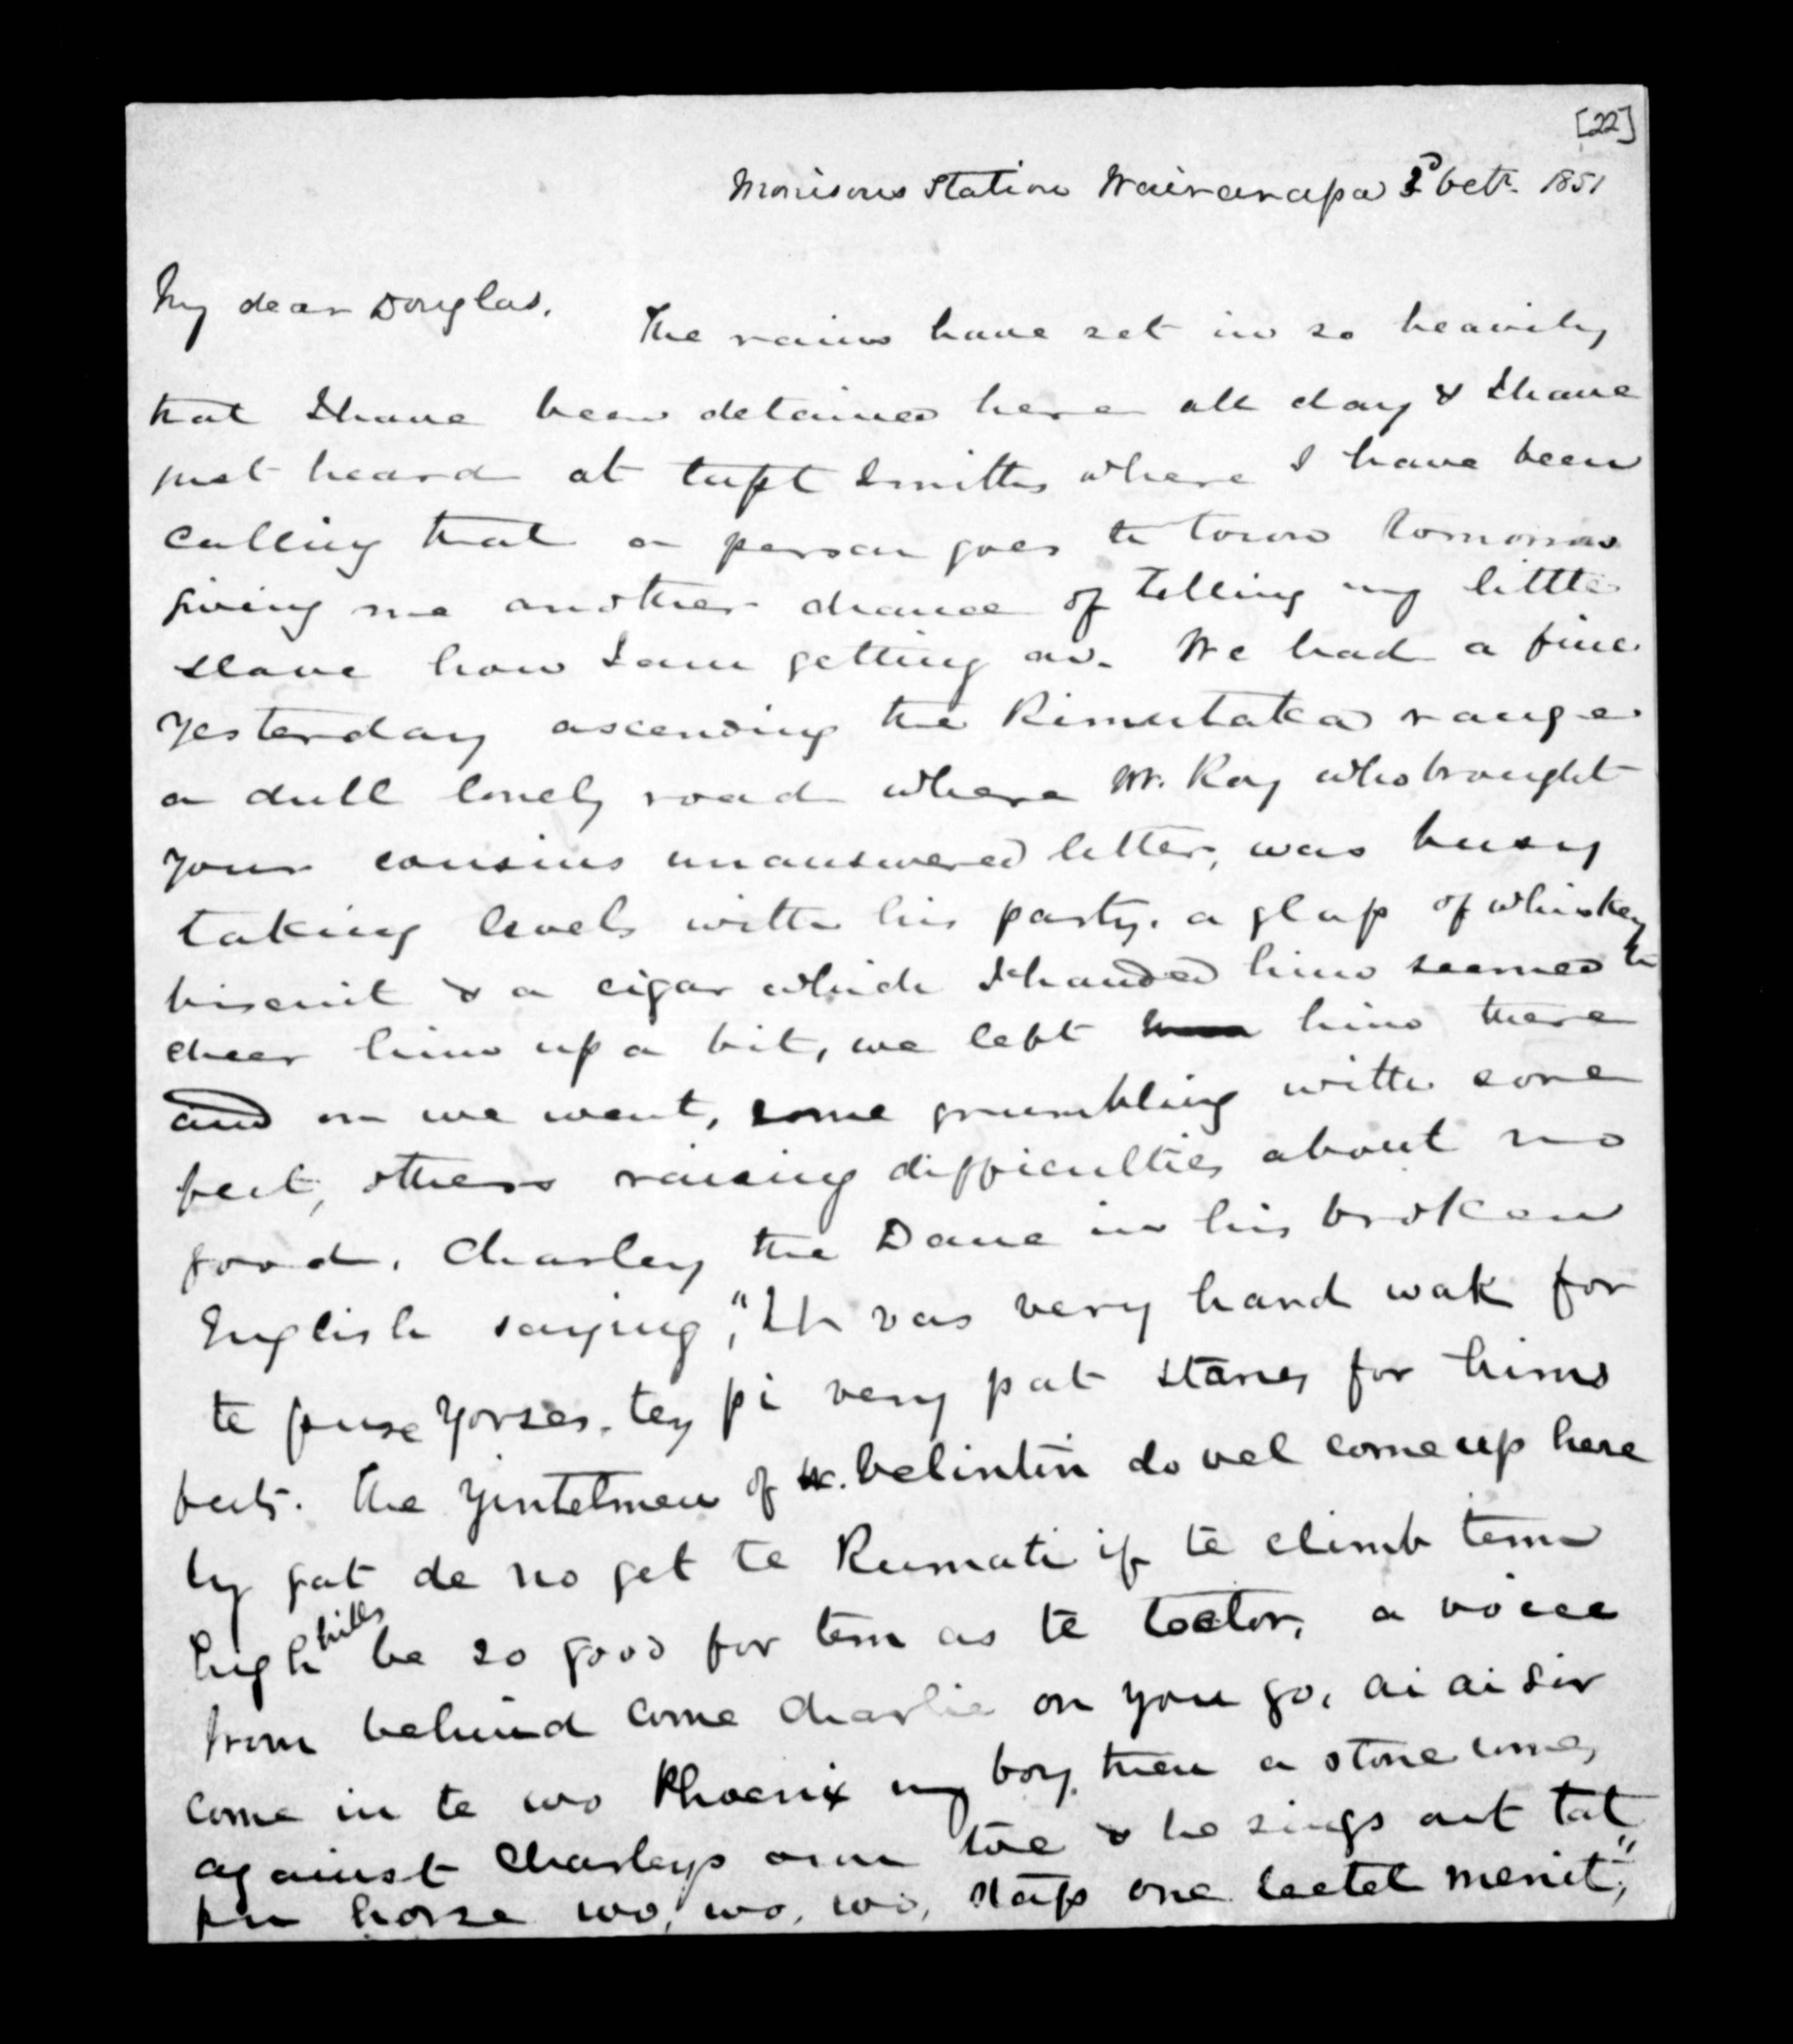 [22]
Morisons Station Wairarapa 3d Octr. 1851
My dear Douglas,
The rains have set in so heavily
that I have been detained here all day & I have
just heard at Capt Smiths where I have been
calling that a person goes to town tomorrow
giving me another chance of telling my little
slave how I am getting on. We had a fine
yesterday ascending the Rimutaka range
a dull lonely road where Mr. Roy who brought
your cousins unanswered letter, was busy
taking levels with his party. a glass of whiskey
biscuit & a cigar which I handed him seemed to
cheer him up a bit, we left him there
and on we went, some grumbling with sore
feet, others raising difficulties about no
food. Charley the Dane in his broken
English saying, "It vas very hard wak for
te puse yorses. tey pi very pat stanes for hims
feets. The yintelmen of Velintin do vel come up here
by gat de no get te Rumati if te climb tem
high hills be so good for tem as te toctor, a voice
from behind come Charlie on you go, ai ai sir
come in te wo Phoenix my boy, then a stone comes
against Charleys arm toe & he sings out tat
pu horse wo, wo, wo, stap one leetel menit,"